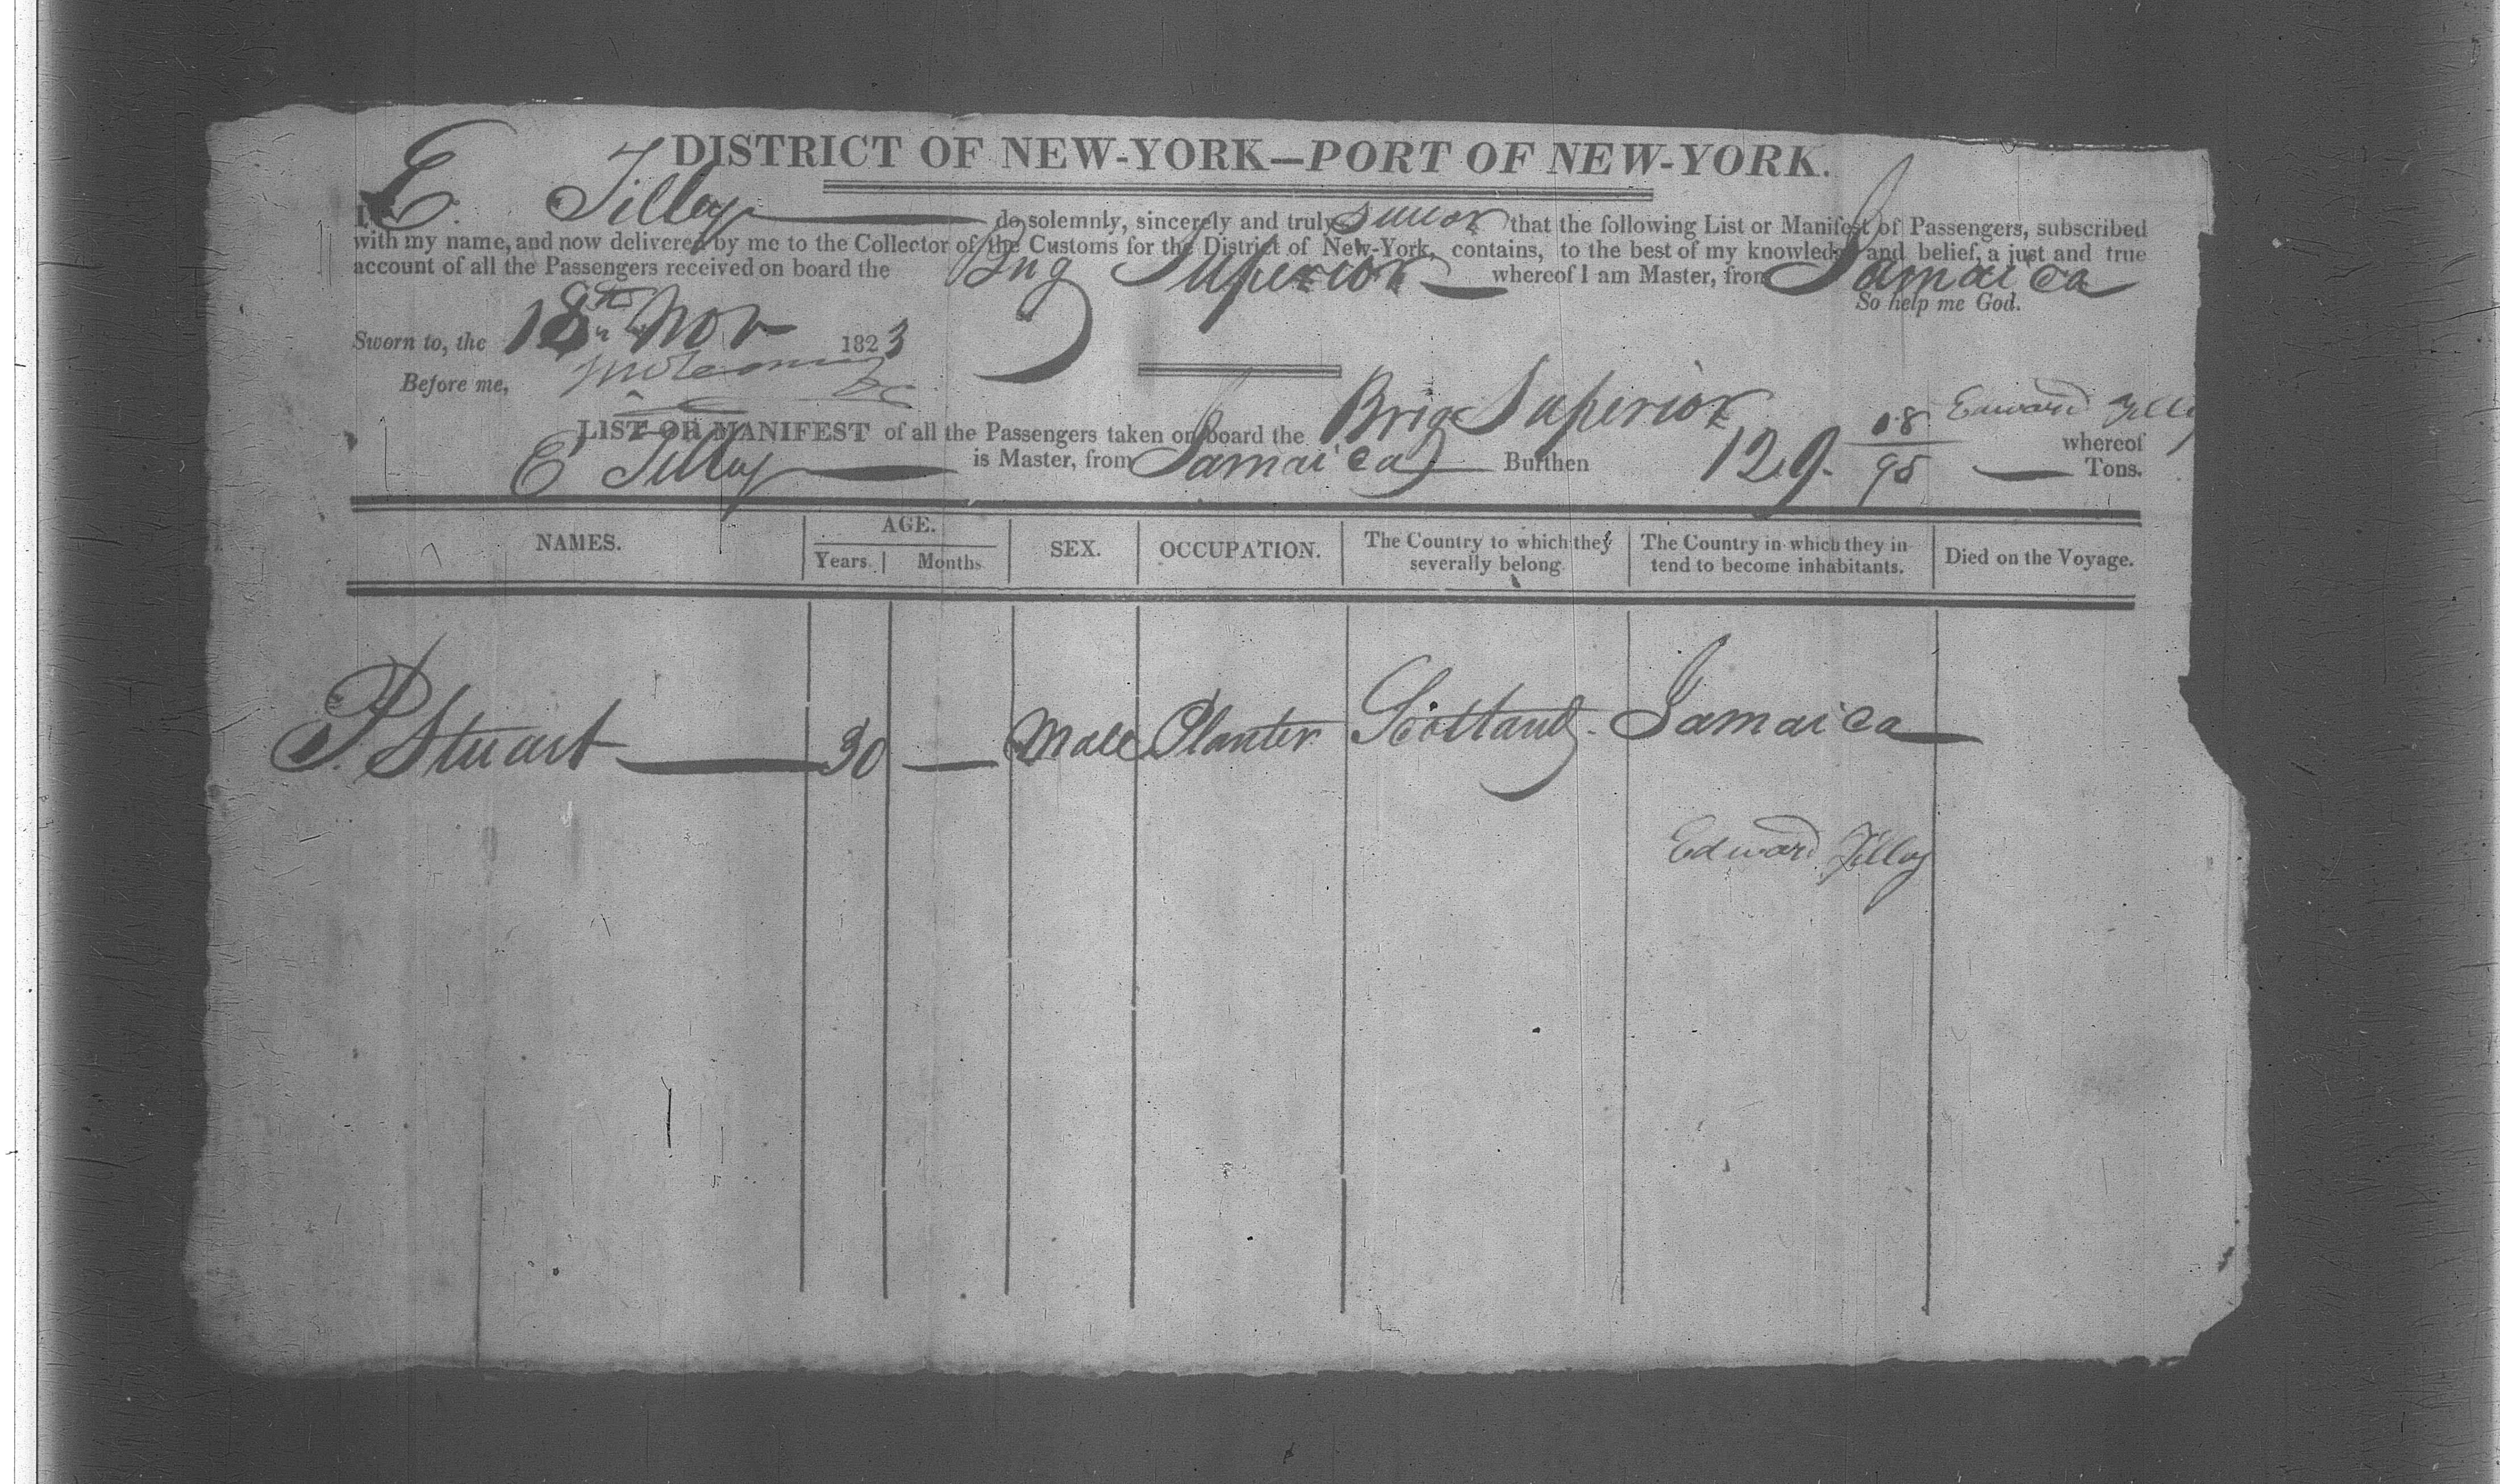 DISTRICT OF NEW-YORK—PORT OF NEW-YORK.
I, E. Tilley do solemnly, sincerely and truly swear that the following List or Manifest of Passengers, subscribed
with my name, and now delivered by me to the Collector of the Customs for the District of New-York, contains, to the best of my knowledge and belief, a just and true
account of all the Passengers received on board the Brig Superior whereof I am Master, from Jamaica
So help me God.
Sworn to, the 18th Nov 1823
Before me,
Edward Tilley
LIST OR MANIFEST of all the Passengers taken on board the Brig Superior whereof
E Tilley is Master, from Jamaica Burthen 129 18/95 Tons.
NAMES. AGE. SEX. OCCUPATION. The Country to which they severally belong The Country in which they in-tend to become inhabitants. Died on the Voyage.
Years. Months
P. Stuart 30 — Male Planter Scotland. Jamaica
Edward Tilley